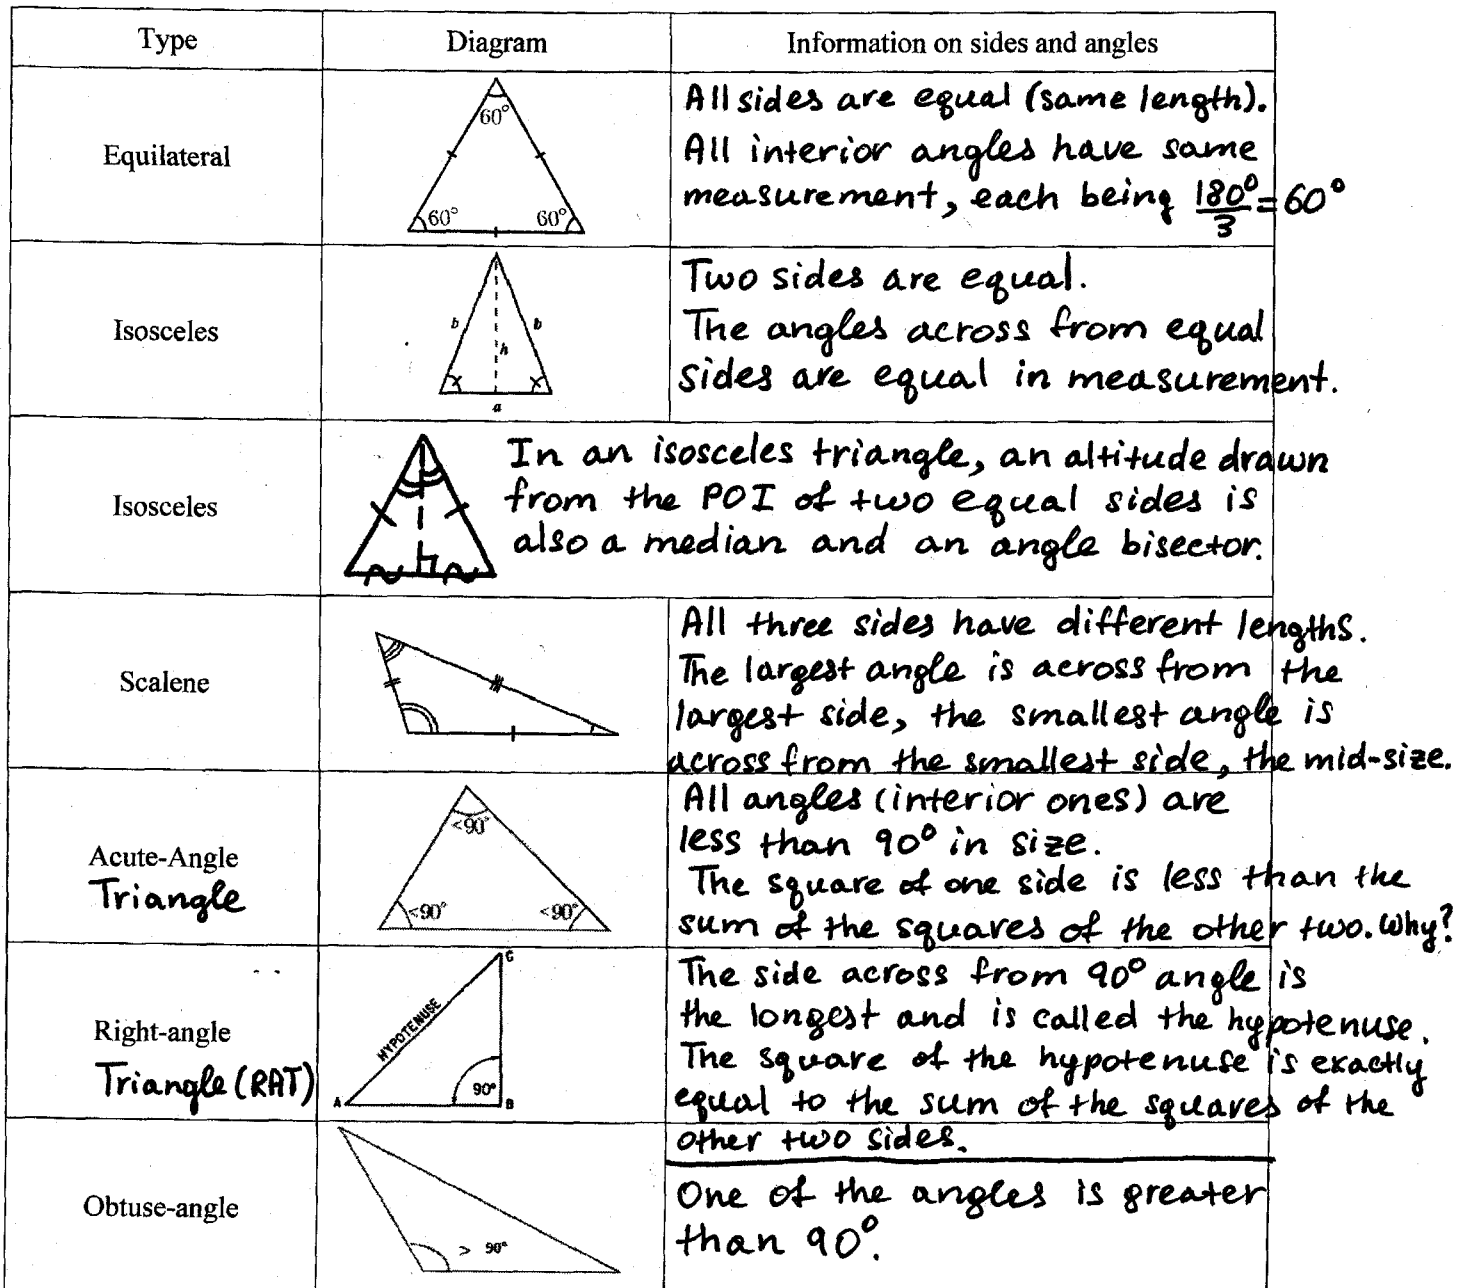 Type Diagram Information on sides and angles
Equilateral
60°
60° 60°
All sides are equal (same length).
All interior angles have same
measurement, each being 180°/3 = 60°
Isosceles
b b
h
a
Two sides are equal.
The angles across from equal
sides are equal in measurement.
Isosceles
In an isosceles triangle, an altitude drawn
from the POI of two equal sides is
also a median and an angle bisector.
Scalene
All three sides have different lengths.
The largest angle is across from the
largest side, the smallest angle is
across from the smallest side, the mid-size.
Acute-Angle
Triangle
<90°
<90° <90°
All angles (interior ones) are
less than 90° in size.
The square of one side is less than the
sum of the squares of the other two. Why?
Right-angle
Triangle (RAT)
C
HYPOTENUSE
90°
A B
The side across from 90° angle is
the longest and is called the hypotenuse.
The square of the hypotenuse is exactly
equal to the sum of the squares of the
other two sides.
Obtuse-angle
> 90°
One of the angles is greater
than 90°.